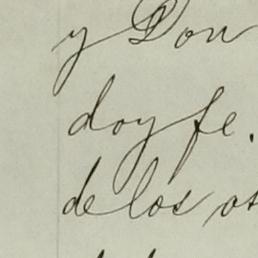 y Don
doy fe.
de los